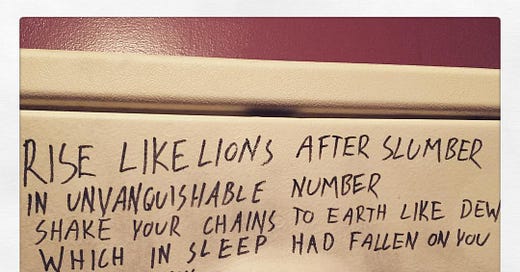 RISE LIKE LIONS AFTER SLUMBER
IN UNVANQUISHABLE NUMBER
SHAKE YOUR CHAINS TO EARTH LIKE DEW
WHICH IN SLEEP HAD FALLEN ON YOU